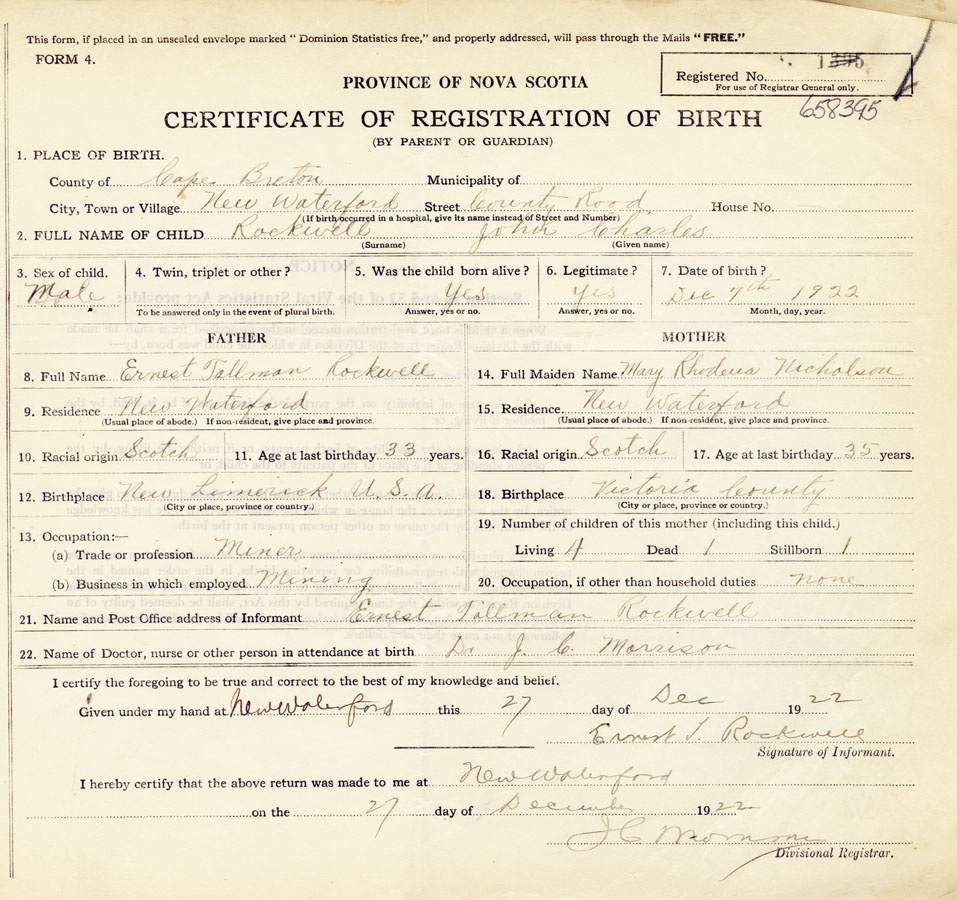 This form, if placed in an unsealed envelope marked "Dominion Statistics free," and properly addressed, will pass through the Mails "FREE."
FORM 4.
Registered No.
For use of Registrar General only.
658395
PROVINCE OF NOVA SCOTIA
CERTIFICATE OF REGISTRATION OF BIRTH
(BY PARENT OR GUARDIAN)
1. PLACE OF BIRTH.
County of Cape Breton Municipality of
City, Town or Village New Waterford Street County Road House No.
(If birth occurred in a hospital, give its name instead of Street and Number)
2. FULL NAME OF CHILD Rockwell John Charles
(Surname) (Given name)
3. Sex of child. 4. Twin, triplet or other? 5. Was the child born alive? 6. Legitimate? 7. Date of birth?
Male Yes Yes Dec 7th 1922
To be answered only in the event of plural birth. Answer, yes or no. Answer, yes or no. Month, day, year.
FATHER MOTHER
8. Full Name Ernest Tallman Rockwell 14. Full Maiden Name Mary Rhodena Nicholson
9. Residence New Waterford 15. Residence New Waterford
(Usual place of abode.) If non-resident, give place and province. (Usual place of abode.) If non-resident, give place and province.
10. Racial origin Scotch 11. Age at last birthday 33 years. 16. Racial origin Scotch 17. Age at last birthday 35 years.
12. Birthplace New Limerick U.S.A. 18. Birthplace Victoria County
(City or place, province or country.) (City or place, province or country.)
13. Occupation:— 19. Number of children of this mother (including this child.)
(a) Trade or profession Miner Living 4 Dead 1 Stillborn 1
(b) Business in which employed Mining 20. Occupation, if other than household duties none
21. Name and Post Office address of Informant Ernest Tallman Rockwell
22. Name of Doctor, nurse or other person in attendance at birth Dr J. C. Morrison
I certify the foregoing to be true and correct to the best of my knowledge and belief.
Given under my hand at New Waterford this 27 day of Dec 1922
Ernest T. Rockwell
Signature of Informant.
I hereby certify that the above return was made to me at New Waterford
on the 27 day of December 1922
J C Morrison
Divisional Registrar.